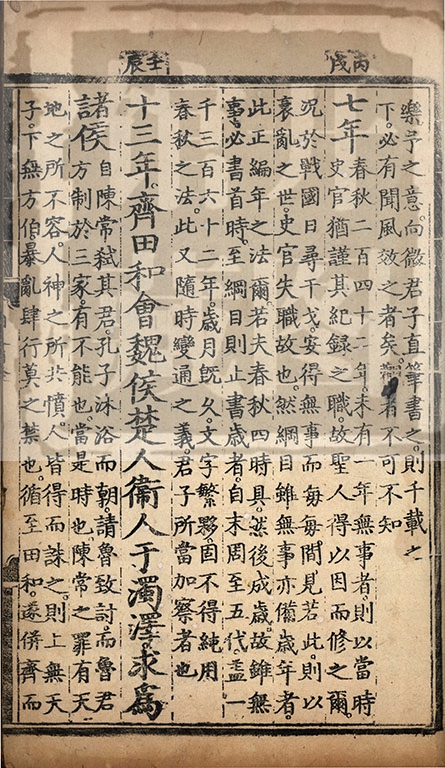 丙戌
樂予之意。向微君子直筆書之。則千載之
下。必有聞風效之者矣。者不可不知
七年
春秋二百四十二年。未有一年無事者。則以當時
史官猶謹其紀錄之職。故聖人得以因而修之爾。
况於戰國日尋干戈。安得無事而每每間見若此。則以
衰亂之世。史官失職故也。然綱目雖無事亦備歲年者。
此正編年之法爾。若夫春秋四時具。然後成歲。故雖無
事。必書首時。至綱目則止書歲者。自末周至五代。盖一
千三百六十二年。歲月旣久。文字繁夥。固不得純用
春秋之法。此又隨時變通之義。君子所當加察者也
壬辰
十三年。齊田和會魏侯楚人衞人于濁澤。求爲
諸侯
自陳常弑其君。孔子沐浴而朝。請魯致討。而魯君
方制於三家。有不能也。當是時也。陳常之罪有天
地之所不容。人神之所共憤。人皆得而誅之。則上無天
子。下無方伯。暴亂肆行莫之禁也。循至田和。遂併齊而